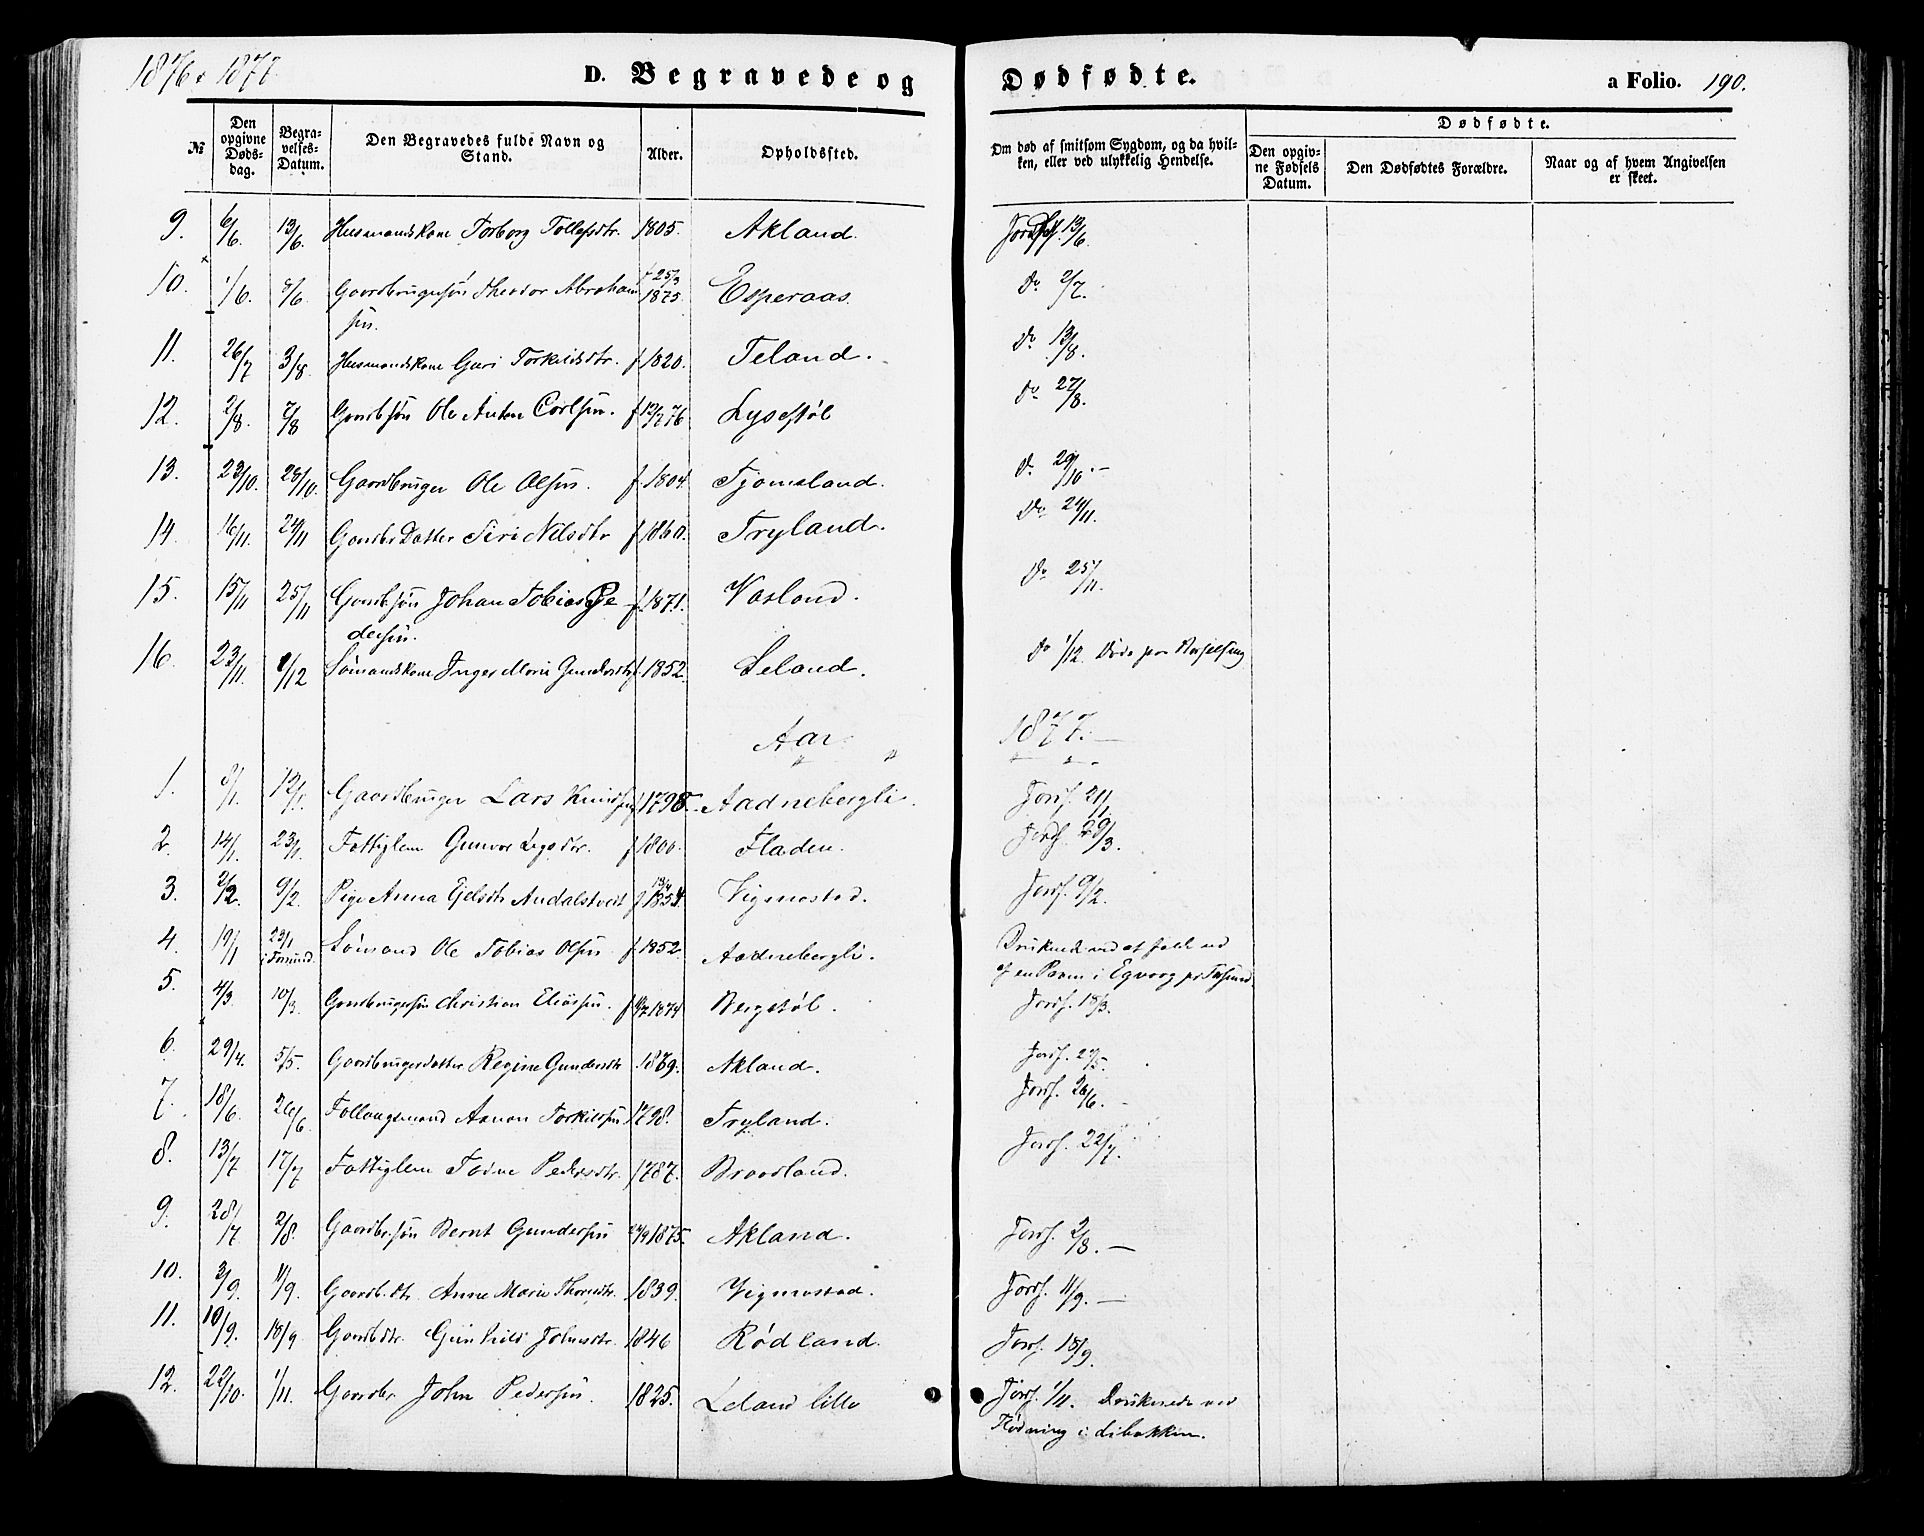 1876 & 1877
D. Begravede og Dødfødte. a Folio. 190.
№ Den opgivne Døds-dag. Begra-velses-Datum. Den Begravedes fulde Navn og Stand. Alder. Opholdssted. Om død af smitsom Sygdom, og da hvil-ken, eller ved ulykkelig Hendelse. Dødfødte. Den opgiv-ne Fødsels Datum. Den Dødfødtes Forældre. Naar og af hvem Angivelsen er skeet.
9. 6/6. 13/6. Husmandskone Torborg Tollefsdtr. 1805. Akland. Jordf. 13/6.
10. 1/6. 8/6. Gaardbrugersøn Theodor Abraham f 25/3 1875. Esperaas. Do 2/7.
sen.
11. 26/7 3/8. Husmandskone Guri Torkildsdtr. f. 1820. Teland. Do 13/8.
12. 2/8. 7/8 Gaardbsøn Ole Anton Carlsen. f 12/7 76. Lysestøl Do 27/8.
13. 23/10. 28/10. Gaardbruger Ole Olsen. f. 1804. Tjomsland. Do 29/10.
14. 16/11. 24/11 Gaardbr Datter Siri Nilsdtr f 1860. Tryland. Do 24/11.
15. 15/11 25/11 Gaardbsøn Johan Tobias Pe- f. 1871. Vasland. Do 25/11.
dersen.
16. 23/11. 1/12 Sømandskone Inger Marie Gundersdtr f. 1852. Leland. Do 1/12. Døde paa Barselseng
Aar 1877.
1. 8/1. 12/1. Gaardbruger Lars Knudsen f 1798. Aadnebergli. Jordf. 21/1
2. 14/1. 23/1. Fattiglem Gunvor f 1800. Fladen. Jordf. 29/3.
3. 2/2. 9/2. Pige Anna Ejelsdtr Audalstvedt f. 1834. Vigmostad. Jordf. 9/2.
4. 19/1 23/1 i Farsund. Sømand Ole Tobias Olsen f 1852. Aadnebergli. Druknede ved at falde ud
af en Pram i Egvaag pr Farsund
5. 4/3. 10/3. Gaardbrugersøn Christian Eliassen. f 1874 Bergstøl. Jordf. 18/3.
6. 29/4. 5/5. Gaardbrugerdatter Regine Gundersdtr 1869. Akland. Jordf. 27/5.
7. 18/6. 26/6 Follaugsmand Aanon Torkildsen 1798. Tryland. Jordf. 26/6.
8. 13/7 17/7 Fattiglem Tarine Pedersdtr. 1787. Braadland. Jordf. 22/7.
9. 28/7. 2/8. Gaardbr. søn Bernt Gundersen 24/9 1875. Akland. Jordf. 2/8.
10. 3/9. 11/9. Gaardb. dtr. Anne Marie Thorsdtr. 1839. Vigmostad. Jordf. 11/9.
11. 10/9. 18/9 Gaardbdtr. Gunhild Johnsdtr. 1846 Rødland. Jordf. 18/9.
12. 22/10. 1/11. Gaardbr John Pedersen. 1825. Leland lille Jordf. 1/11. Druknede ved
Flødning i dibakken.